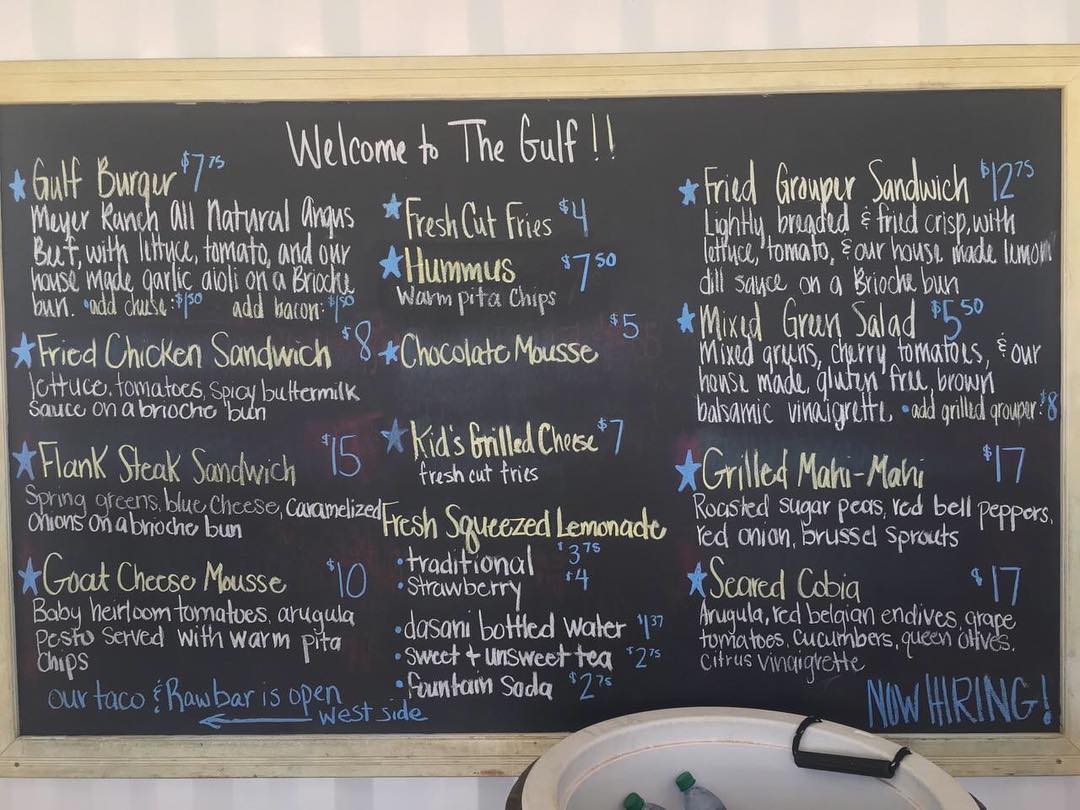 Welcome to The Gulf!!
Gulf Burger $7.75
Meyer Ranch All Natural Angus
Beef, with lettuce, tomato, and our
house made garlic aioli on a Brioche
bun. •add cheese: $1.50 add bacon: $1.50
Fried Chicken Sandwich $8
lettuce, tomatoes, spicy buttermilk
sauce on a brioche bun
Flank Steak Sandwich $15
Spring greens, blue cheese, caramelized
onions on a brioche bun
Goat Cheese Mousse $10
Baby heirloom tomatoes, arugula
pesto served with warm pita
chips
our taco & Raw bar is open
west side
Fresh Cut Fries $4
Hummus $7.50
warm pita chips
Chocolate Mousse $5
Kid's Grilled Cheese $7
fresh cut fries
Fresh Squeezed Lemonade
•traditional $3.75
•Strawberry $4
•dasani bottled water $1.37
•sweet + unsweet tea $2.75
•fountain soda $2.75
Fried Grouper Sandwich $12.75
Lightly breaded & fried crisp, with
lettuce, tomato, & our house made lemon
dill sauce on a Brioche bun
Mixed Green Salad $5.50
Mixed greens, cherry tomatoes, & our
house made, gluten free, brown
balsamic vinaigrette •add grilled grouper: $8
Grilled Mahi-Mahi $17
Roasted sugar peas, red bell peppers,
red onion, brussel sprouts
Seared Cobia $17
Arugula, red belgian endives, grape
tomatoes, cucumbers, queen olives,
citrus vinaigrette
NOW HIRING!